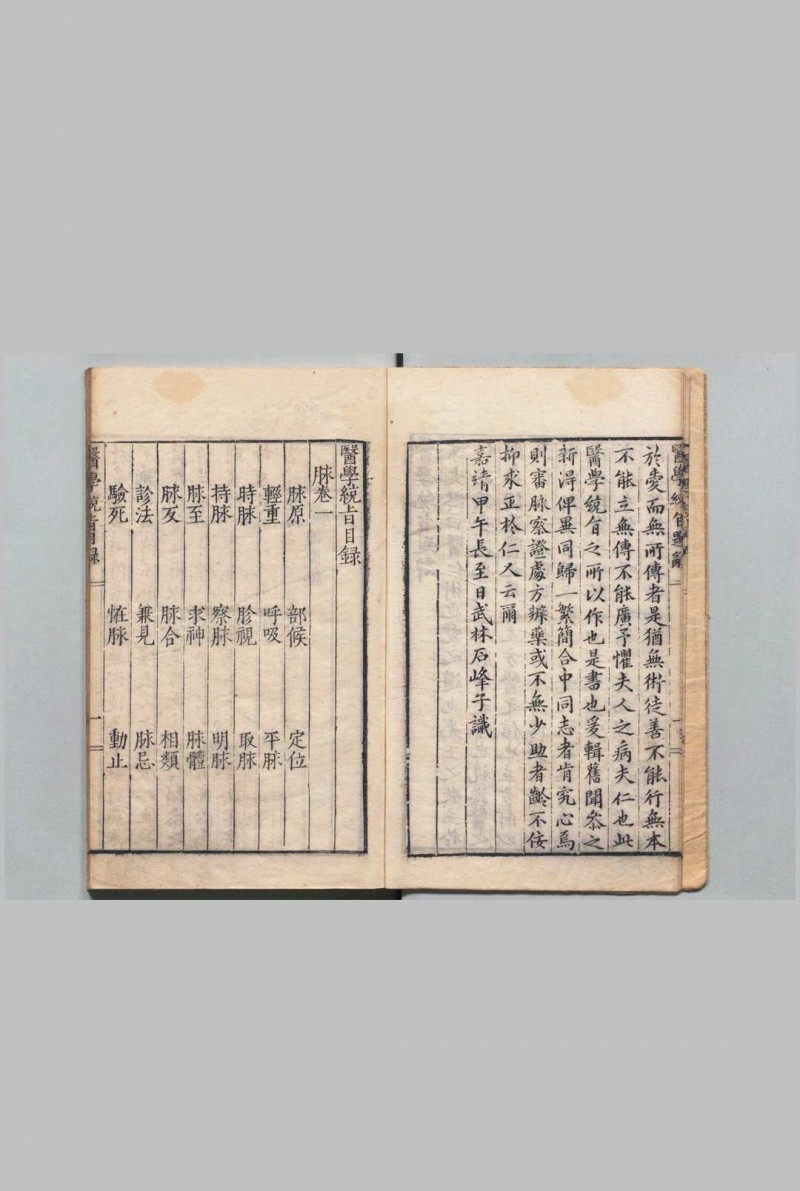 於愛而無所傳者是猶無術徒善不能行無本
不能立無傳不能廣予懼夫人之病夫仁也此
醫學統旨之所以作也是書也爰輯舊聞叅之
新得俾異同歸一繁簡合中同志者肯究心焉
則審脉察證處方辨藥或不無少助者齡不佞
抑求正於仁人云爾
嘉靖甲午長至日武林石峰子識
醫學統旨目録
脉卷一
脉原 部候 定位
輕重 呼吸 平脉
時脉 胗視 取脉
持脉 察脉 明脉
脉至 求神 脉體
脉反 脉合 相類
診法 兼見 脉忌
驗死 恠脉 動止
醫學統旨目録 一